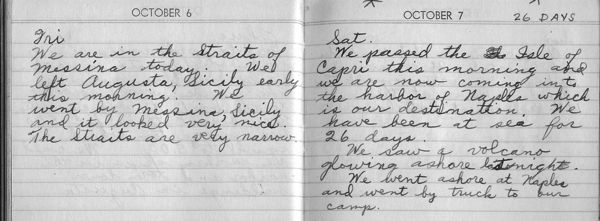 OCTOBER 6
Fri
We are in the Straits of
Messina today. We
left Augusta, Sicily early
this morning. We
went by Messina, Sicily
and it looked very nice.
The Straits are very narrow.
OCTOBER 7 26 DAYS
Sat.
We passed the Isle of
Capri this morning and
we are now coming into
the harbor of Naples which
is our destination. We
have been at sea for
26 days.
We saw a volcano
glowing ashore last night.
We went ashore at Naples
and went by truck to our
camp.